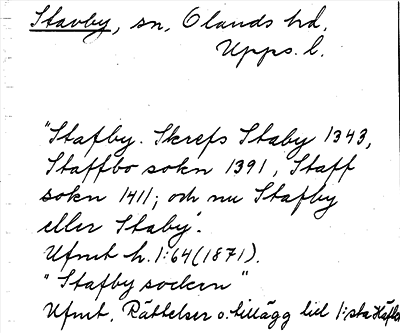 Stavby, sn, Olands hd.
Upps. l.
"Stafby. Skrefs Staby 1343,
Staffbo sokn 1391, Staff
sokn 1411; och nu Stafby
eller Staby."
Ufmt h. 1:64 (1871).
"Stafby socken"
Ufmt, Rättelser o. tillägg till 1:sta Häfte